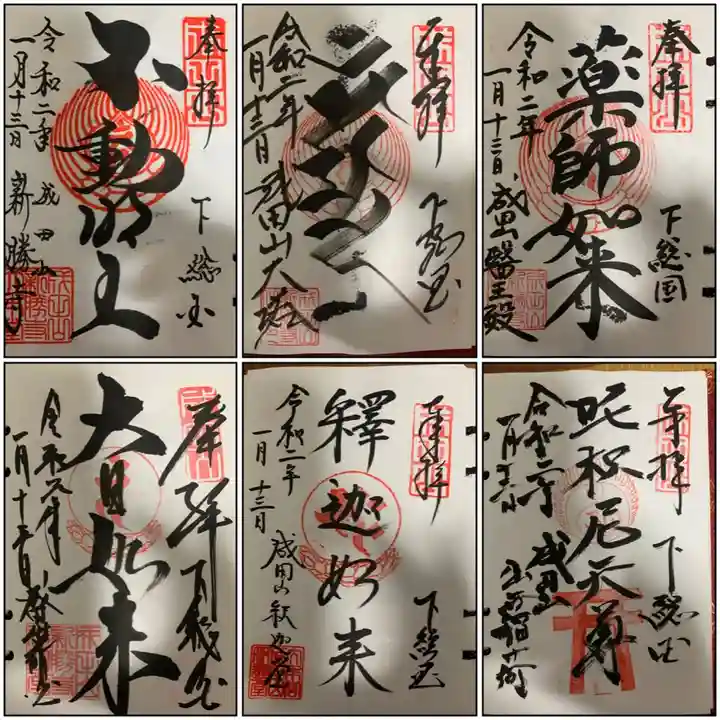 奉拝
下総国
不動明王
令和二年
一月十三日
成田山
新勝寺
奉拝
下総国
令和二年
一月十三日
成田山大塔
奉拝
下総国
薬師如来
令和二年
一月十三日
成田山醫王殿
奉拝
下総国
大日如来
令和二年
一月十三日
奉拝
下総国
釋迦如来
令和二年
一月十三日
成田山釈迦堂
奉拝
下総国
吒枳尼天尊
令和二年
一月十三日
成田山
出世稲荷